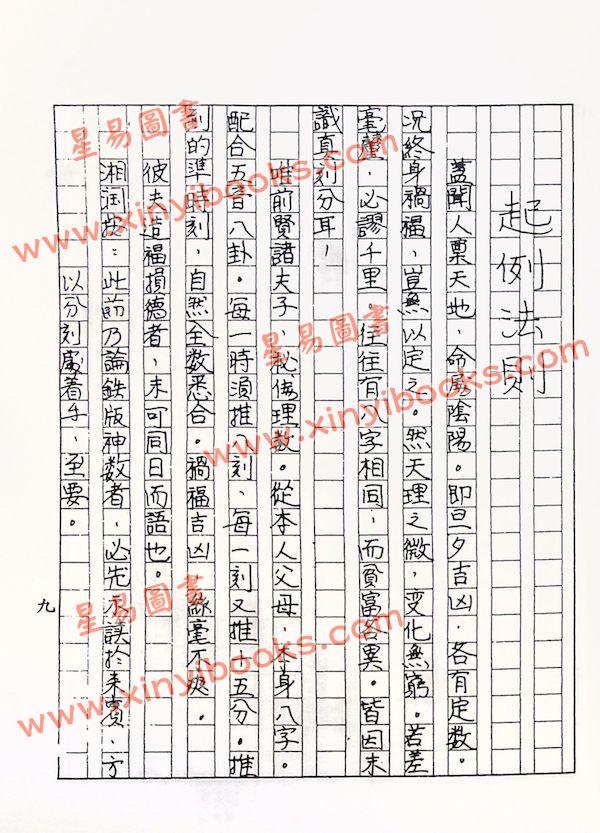 起例法則
蓋聞人稟天地、命屬陰陽。即旦夕吉凶、各有定數。
況終身禍福、豈無以定之。然天理之微、变化無窮。若差
毫釐、必謬千里。往往有八字相同、而貧富各異。皆因未
識真刻分耳、
唯前賢諸夫子、秘傳理数。從本人父母、本身八字。
配合五音八卦。每一時須推八刻、每一刻又推十五分。推
到的準時刻、自然全数悉合。禍福吉凶、絲毫不爽。
彼夫造福損德者、未可同日而語也。
湘润按：此前乃論鉄版神数者、必先不誤於来賓、方
以分刻處着手、至要。
九
星易圖書
www.xinyibooks.com
星易圖書
www.xinyibooks.com
星易圖書
www.xinyibooks.com